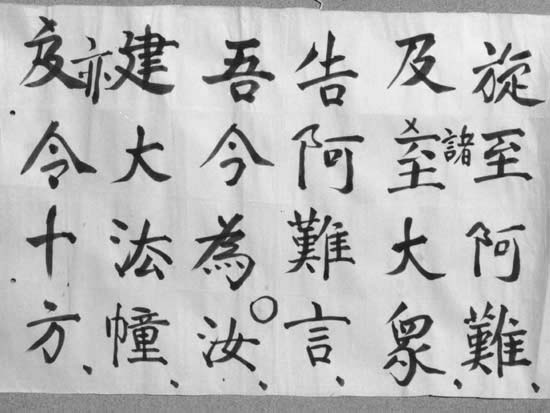 旋至阿難、
及至諸大衆、
告阿難言、
吾今為汝、
建大法幢、
亦令十方、